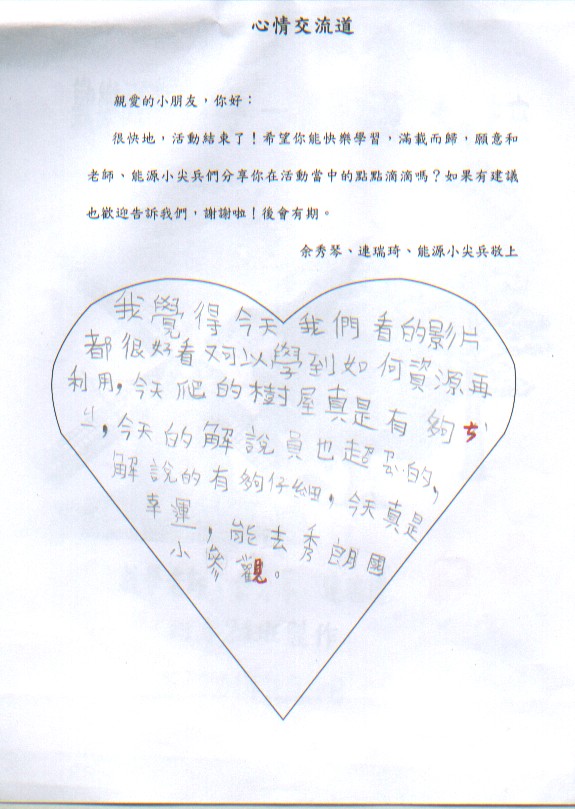 心情交流道
親愛的小朋友，你好：
很快地，活動結束了！希望你能快樂學習，滿載而歸，願意和
老師、能源小尖兵們分享你在活動當中的點點滴滴嗎？如果有建議
也歡迎告訴我們，謝謝啦！後會有期。
余秀琴、連瑞琦、能源小尖兵敬上
我覺得今天我們看的影片
都很好看又可以學到如何資源再
利用，今天爬的樹屋真是有夠ㄘ
ㄓ，今天的解說員也超ㄙ的，
解說的有夠仔細，今天真是
幸運，能去秀朗國
小參觀。